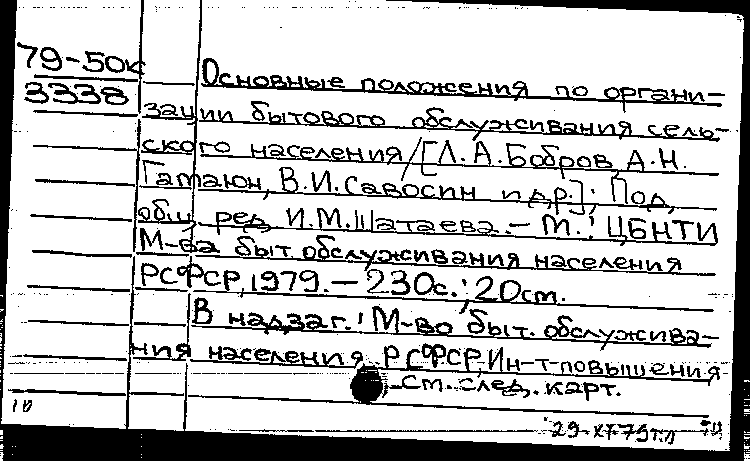 79-50к
3338
Основные положения по органи-
зации бытового обслуживания сель-
ского населения/[Л.А.Бобров, А.Н.
Гатаюн, В.И.Савосин и др.]; Под
общ. ред. И.М.Шатаева.— М.: ЦБНТИ
М-ва быт. обслуживания населения
РСФСР, 1979.— 230с.; 20см.
В надзаг.: М-во быт. обслужива-
ния населения РСФСР, Ин-т повышения
См. след. карт.
10
29-XI-79 тп